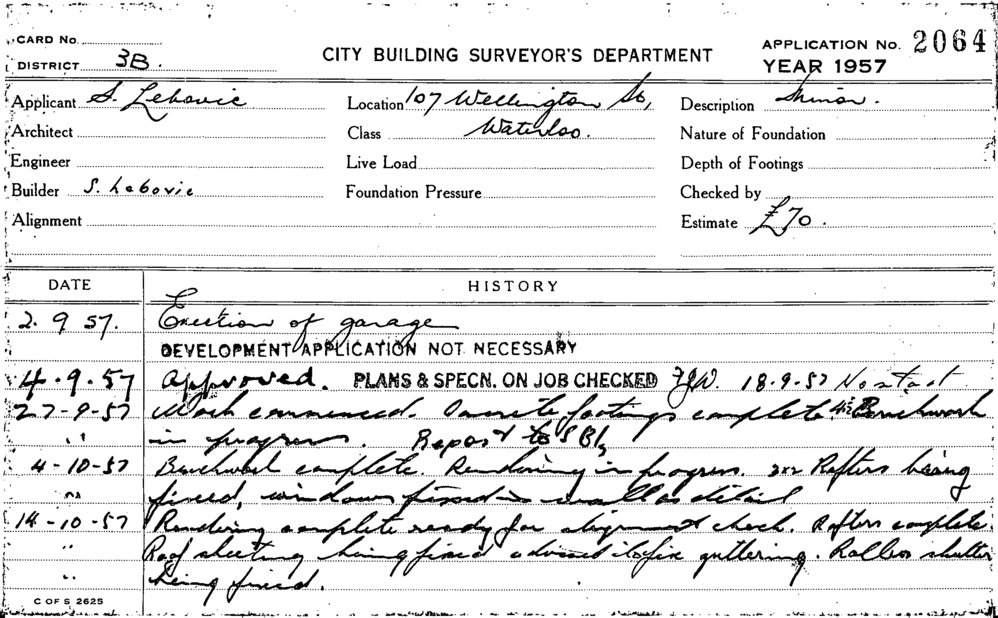 CARD No. APPLICATION No. 2064
DISTRICT 3B. CITY BUILDING SURVEYOR'S DEPARTMENT YEAR 1957
Applicant S. Lebovic Location 107 Wellington St, Description Minor.
Architect Class Waterloo. Nature of Foundation
Engineer Live Load Depth of Footings
Builder S. Lebovic Foundation Pressure Checked by
Alignment Estimate £70.
DATE HISTORY
2. 9 57. Erection of garage
DEVELOPMENT APPLICATION NOT NECESSARY
4.9.57 Approved. PLANS & SPECN. ON JOB CHECKED 18-9-57 No start
27-9-57 Work commenced. Concrete footings complete Brickwork
" in progress. Report to SBI
4-10-57 Brickwork complete. Rendering in progress. Rafters being
" fixed, windows fixed in wall as detail
14-10-57 Rendering complete ready for alignment check. Rafters complete.
" Roof sheeting being fixed advised to fix guttering. Roller shutter
" being fixed.
C OF S 2625